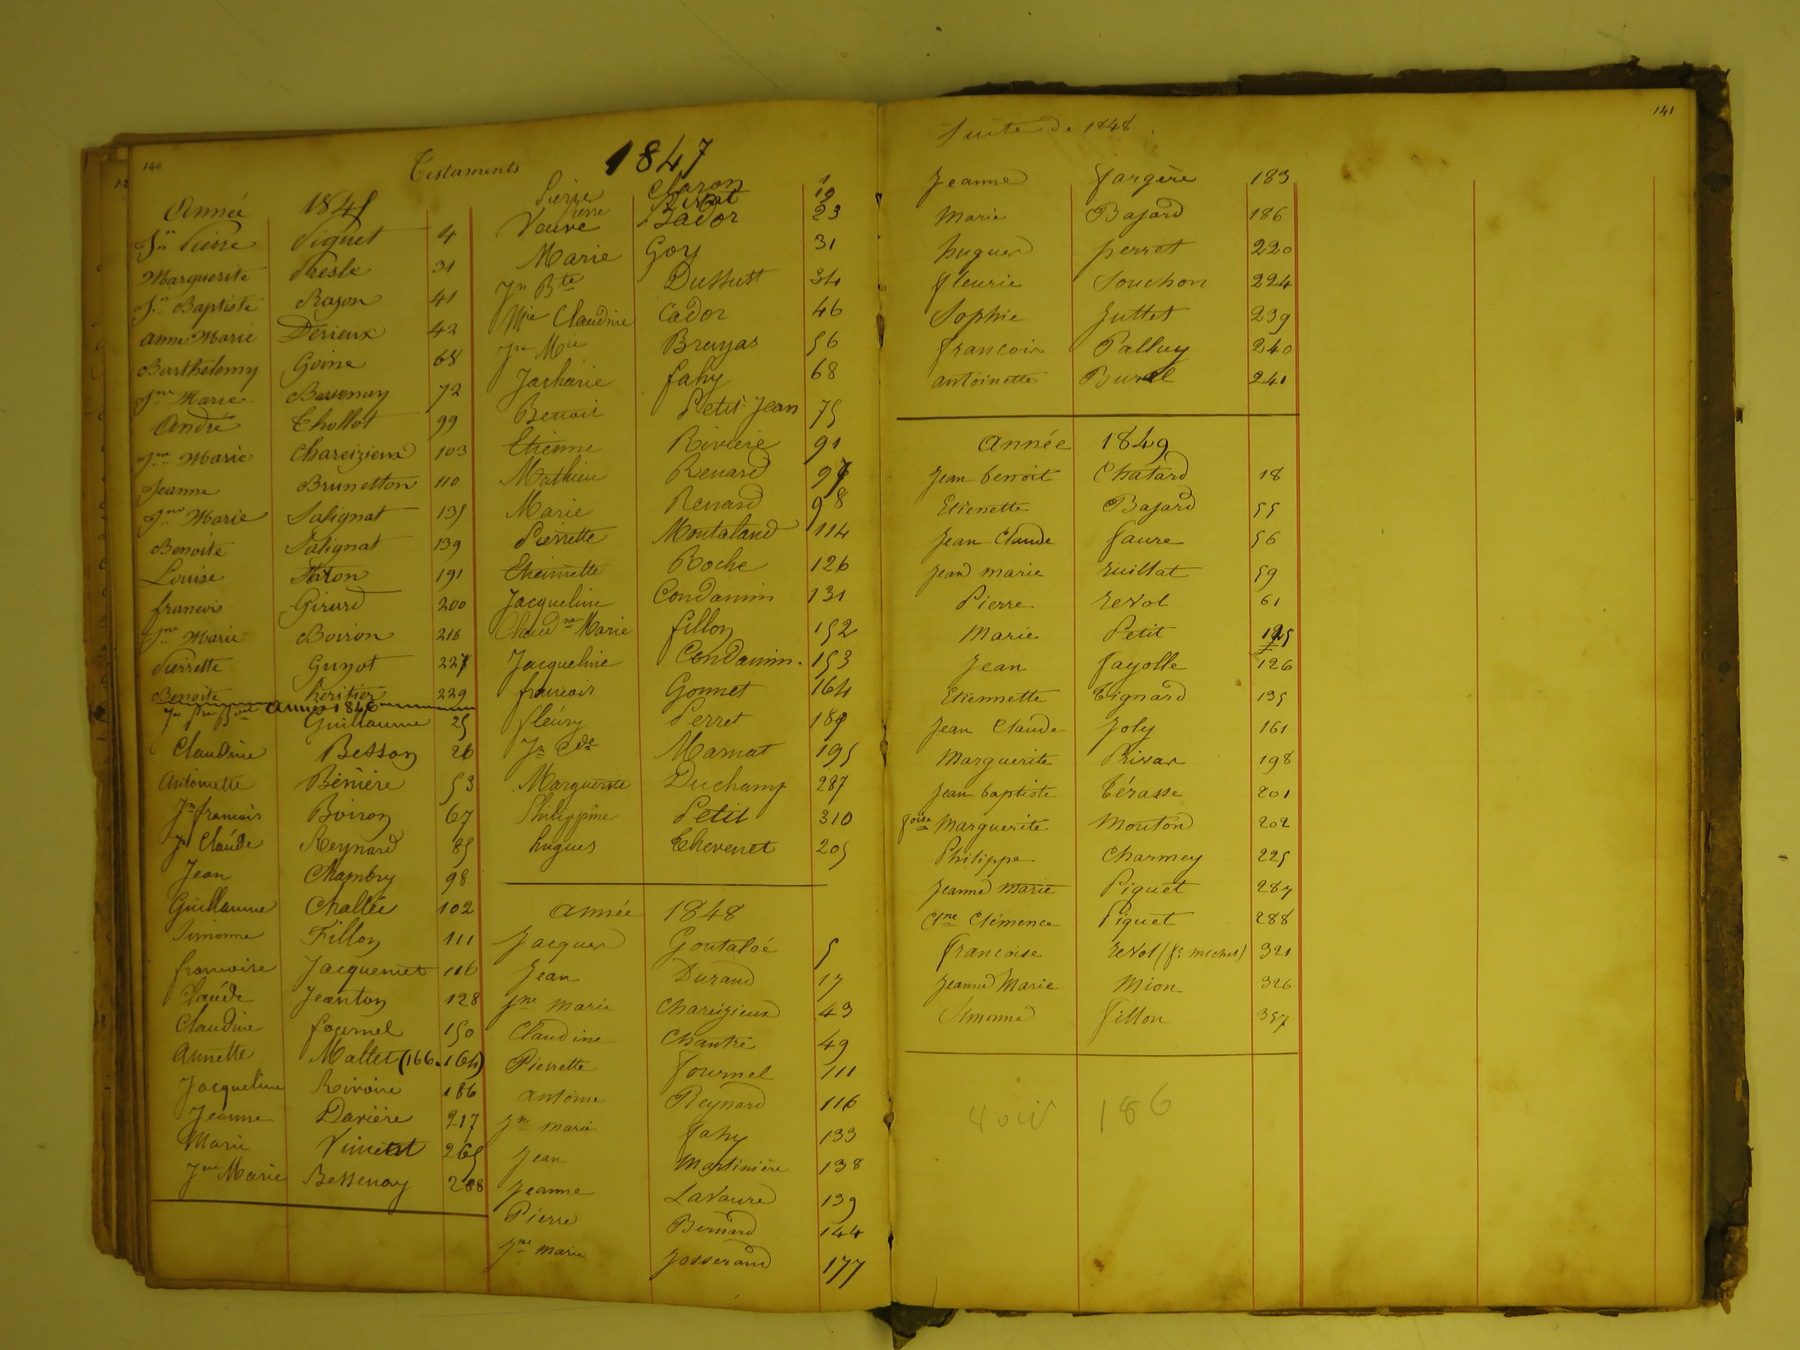 140
Testaments
Année 1845
Jn Pierre Piquet 4
Marguerite Presle 31
Jn Baptiste Rajon 41
Anne Marie Derieux 42
Barthélemy Goine 68
Jne Marie Bessenay 72
André Thollot 99
Jne Marie Chareizieux 103
Jeanne Brunetton 110
Jne Marie Salignat 135
Benoite Salignat 139
Louise 191
francois Girard 200
Jne Marie Boiron 216
Pierrette Guyot 227
Benoite heritier 229
année 1846
Guillaume 25
Claudine Besson 26
Antoinette Bénière 53
Jn francois Boiron 67
Jn Claude Reynard 85
Jean Chambry 98
Guillaume Challée 102
Simonne Fillon 111
francoise Jacquemet 116
Claude Jeanton 128
Claudine fournel 150
Annette Mallet (166. 164)
Jacqueline Rivoire 186
Jeanne Darière 217
Marie Vincent 265
Jne Marie Bessenay 288
1847
Pierre Claron 1
Pierre 10
Veuve Bador 23
Marie Goy 31
Jn Bte Dussurt 34
Mie Claudine Cador 46
Jne Mie Bruyas 56
Zacharie fahy 68
Benoit Petit-Jean 75
Etienne Rivière 91
Mathieu Renard 97
Marie Renard 98
Pierrette Montaland 114
Etiennette Roche 126
Jacqueline Condamin 131
Claudne Marie fillon 152
Jacqueline Condamin. 153
francois Gonnet 164
fleury Perret 189
Jn Cde Marnat 195
Marguerite Duchamp 287
Philippine Petit 310
hugues Thevenet 205
année 1848
Jacques Goutaloé 5
Jean Durand 17
Jne marie Chareizieux 43
Claudine Chantre 49
Pierrette fournel 111
antoine Reynard 116
Jne marie fahy 133
Jean Martinière 138
Jeanne Lavaure 139
Pierre Bernard 144
Jne marie Josserand 177
141
Suite de 1848.
Jeanne fargère 183
Marie Bajard 186
hugues perret 220
fleurie Souchon 224
Sophie Juttet 239
francois Palluy 240
antoinette Burel 241
année 1849
Jean benoit Chatard 18
Etienette Bajard 55
Jean Claude faure 56
Jean marie ruillat 59
Pierre revol 61
Marie Petit 125
Jean fayolle 126
Etiennette Tignard 135
Jean Claude Joly 161
Marguerite Privas 198
Jean baptiste Térasse 201
foise Marguerite Mouton 202
Philippe Charmey 225
Jeanne marie Piquet 287
Cne Clémence Piquet 288
francoise revol (fe michel) 321
Jeanne Marie Mion 326
Simonne fillon 357
voir 186